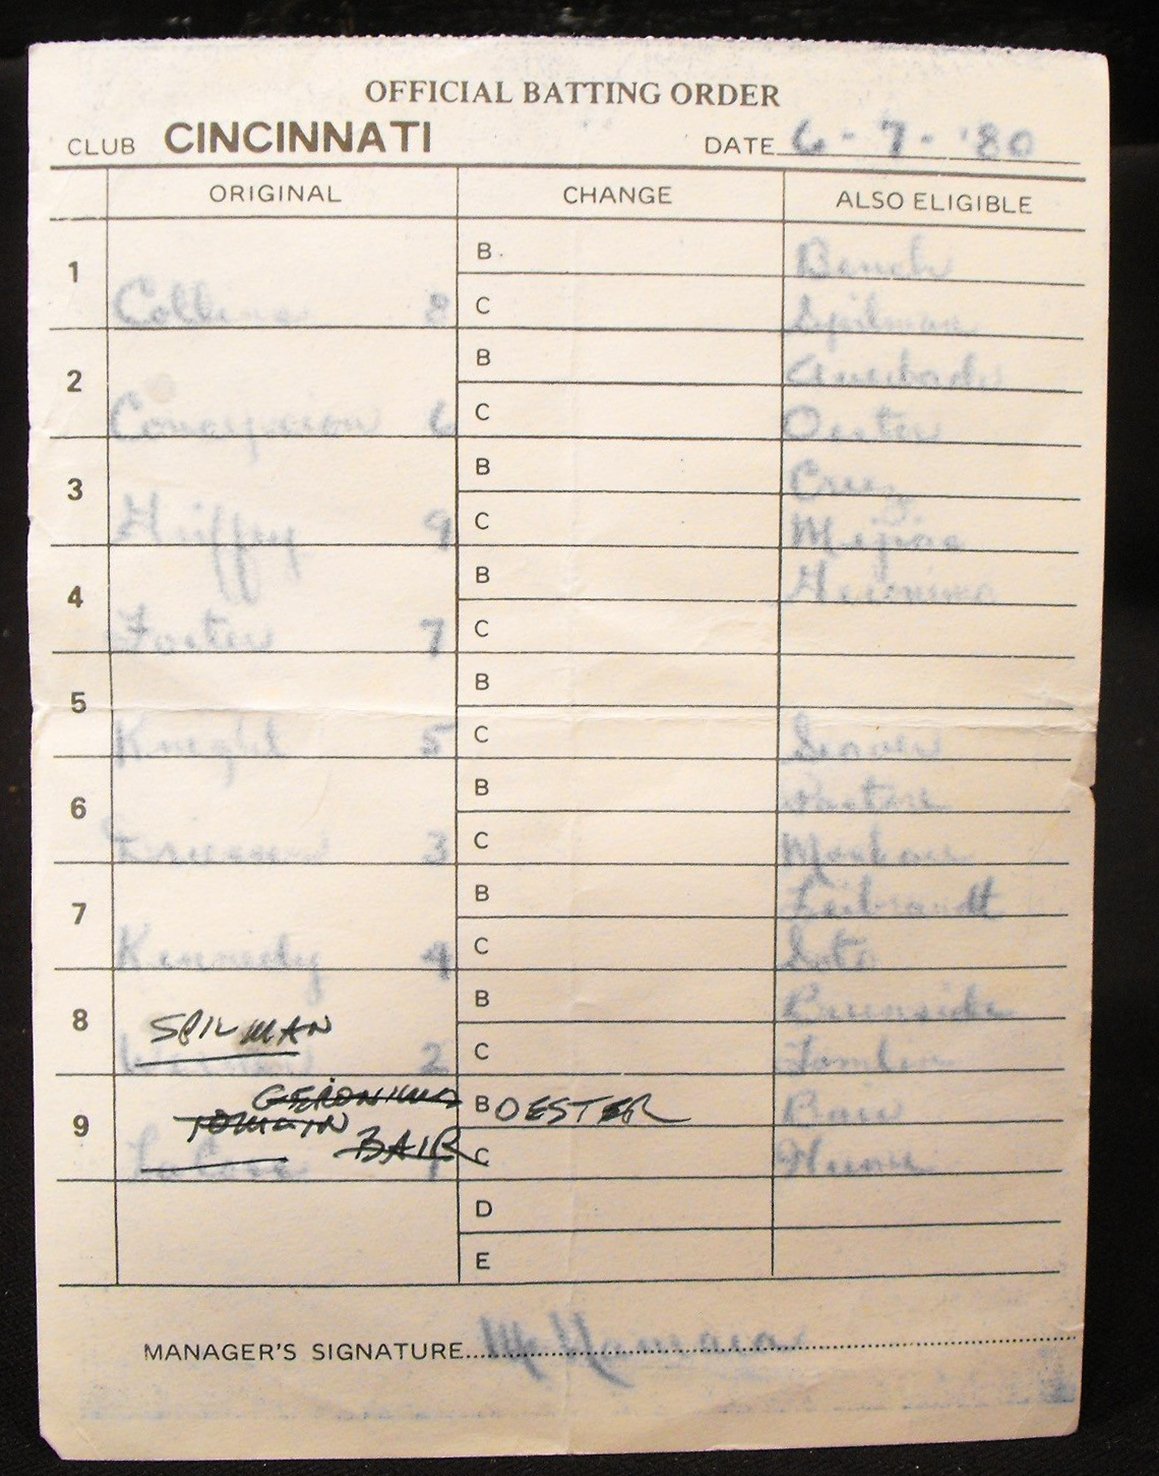 OFFICIAL BATTING ORDER
CLUB CINCINNATI DATE 6-7-'80
ORIGINAL CHANGE ALSO ELIGIBLE
1 Collins 8 B. Bench
C Spilman
2 Concepcion 6 B Auerbach
C Oester
3 Griffey 9 B Cruz
C Mejias
4 Foster 7 B Geronimo
C
5 Knight 5 B
C Seaver
6 Driessen 3 B Pastore
C Moskau
7 Kennedy 4 B Leibrandt
C Soto
8 SPILMAN B Burnside
Werner 2 C Tomlin
9 GERONIMO B OESTER Bair
TOMLIN BAIR
LaCoss 1 C Hume
D
E
MANAGER'S SIGNATURE